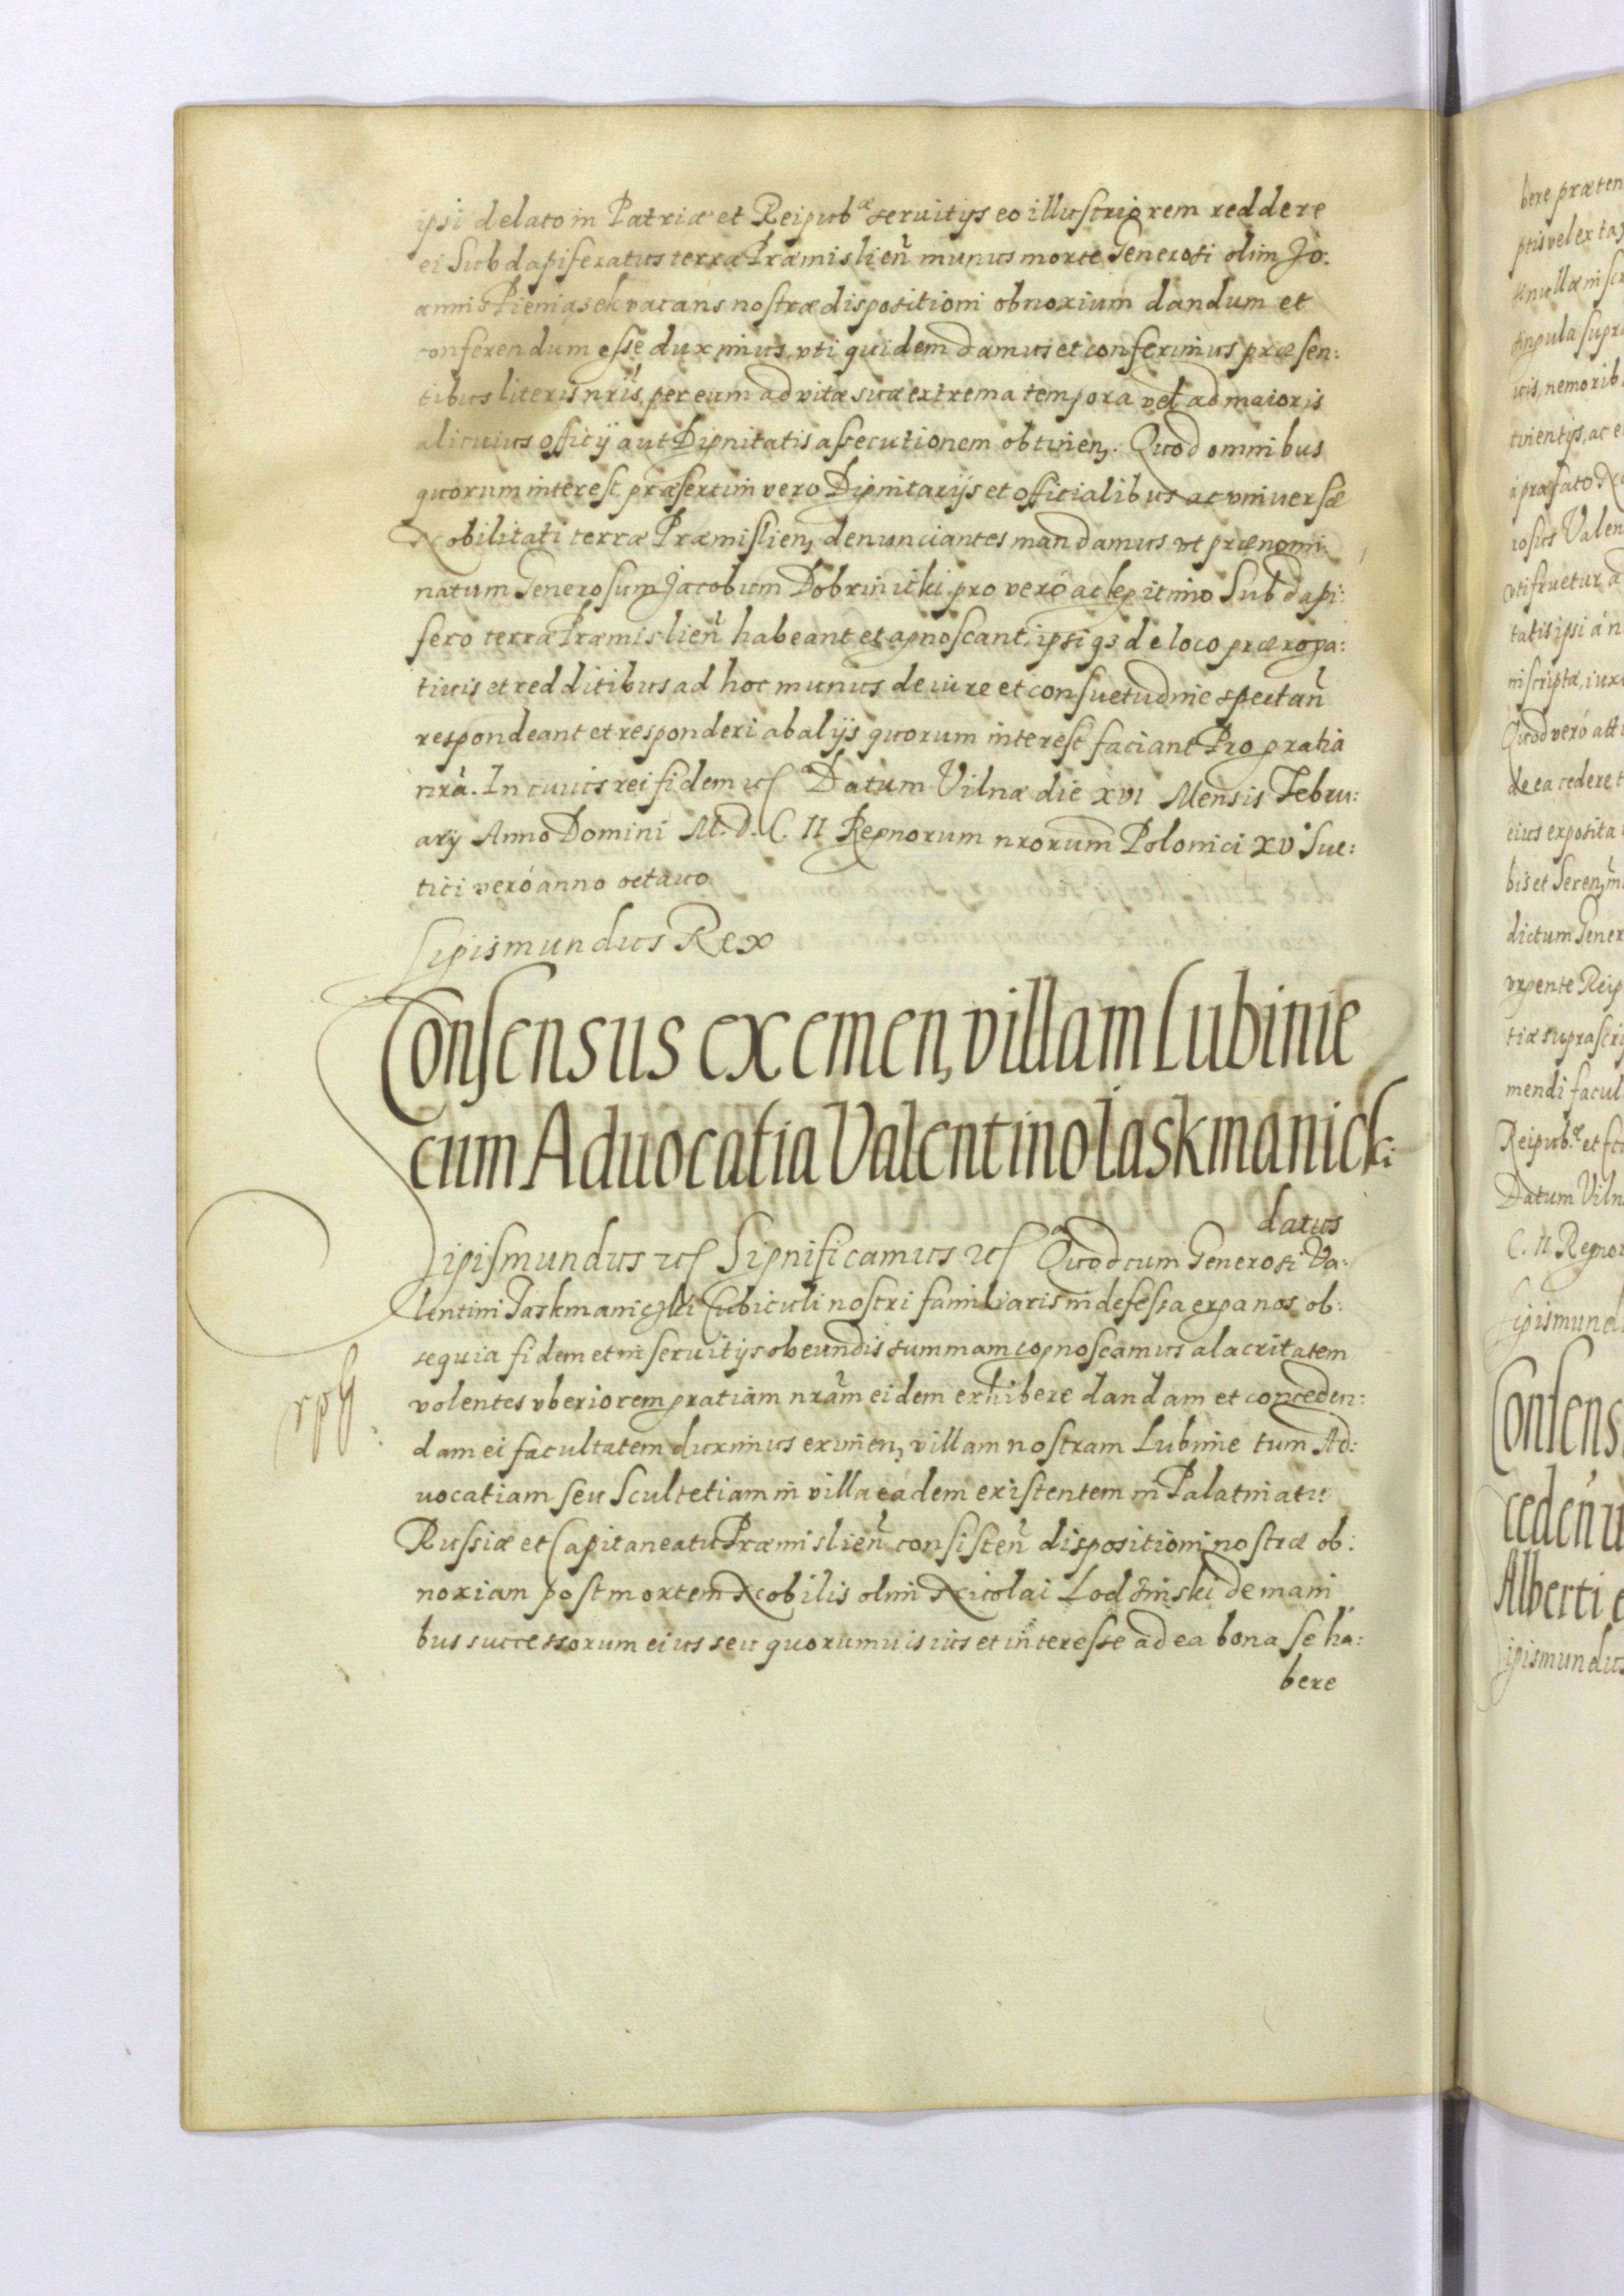 ipsi delato in Patriæ et Reipubᵃᵉ seruitijs eo illustriorem reddere
ei Subdapiferatus terræ Præmislien̄ munus morte Generosi olim Jo:
annis Pieniąsek vacans nostræ dispositioni obnoxium dandum et
conferendum esse duximus, vti quidem damus et conferimus præsen:
tibus literis nr̄is, per eum ad vitæ suæ extrema tempora vel ad maioris
alicuius officij aut Dignitatis assecutionem obtinen, Quod omnibus
quorum interest præsertim vero Dignitarijs et officialibus ac vniversæ
Nobilitati terræ Præmislien, denunciantes mandamus vt prænomi:
natum Generosum Jacobum Dobrinicki pro vero ac legitimo Subdapi:
fero terræ Præmislien̄ habeant et agnoscant, ipsiq3 de loco præroga:
tiuis et redditibus ad hoc munus de iure et consuetudine spectan̄
respondeant et responderi ab alijs quorum interest faciant Pro gratia
nr̄a. In cuius rei fidem etc Datum Vilnæ die XVI Mensis Febru:
arij Anno Domini M.D.C.II Regnorum nrorum Polonici XV Sue:
tici veró anno octauo
Sigismundus Rex
Consensus eximen, villam Lubinie
cum Aduocatia Valentino Iaskmanick:
datus
Sigismundus etc Significamus etc Quod cum Generosi Va:
lentini Jaskmanicki Cubiculi nostri familiaris indefessa erga nos ob:
sequia fidem et in seruitijs obeundis summam cognoscamus alacritatem
volentes vberiorem gratiam nr̄am eidem exhibere dandam et conceden:
dam ei facultatem duximus eximen, villam nostram Lubinie tum Ad:
uocatiam seu Scultetiam in villa eadem existentem in Palatinatu
Russiæ et Capitaneatu Præmislien̄ consisten̄ dispositioni nostræ ob:
noxiam post mortem Nobilis olim Nicolai Lodzinski de mani
bus successorum eius seu quorumuis ius et interesse ad ea bona se ha:
bere